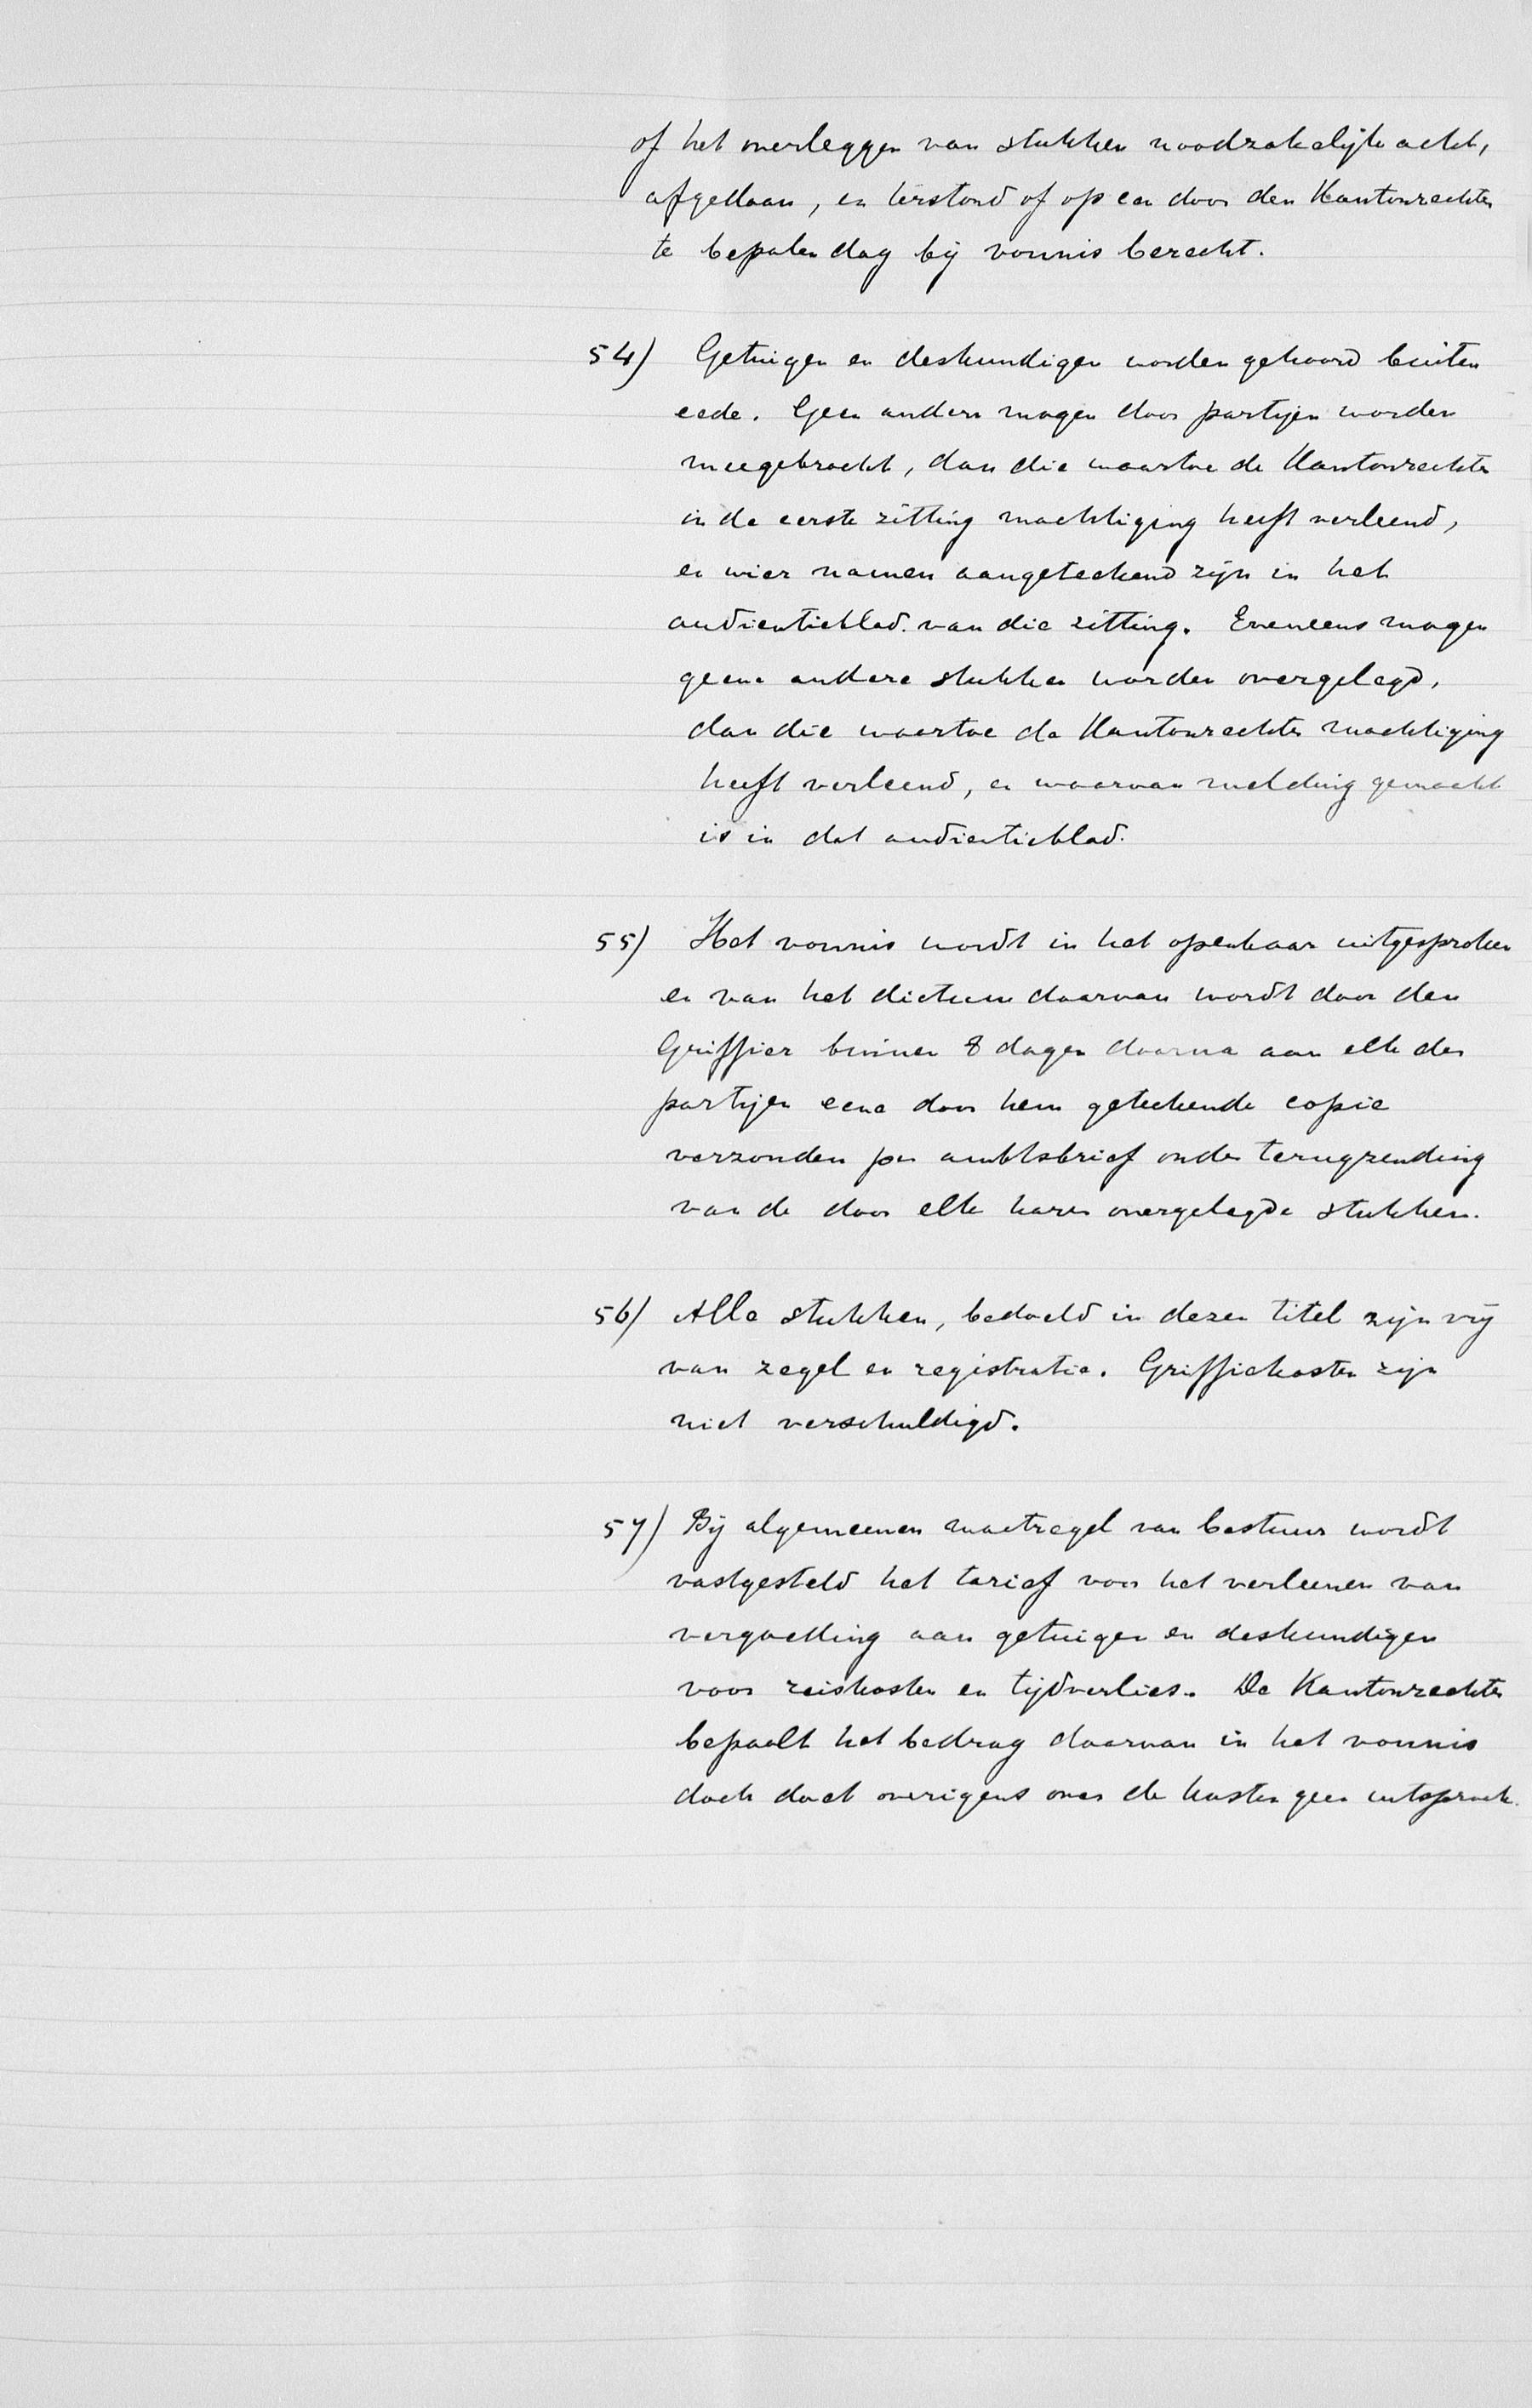 of het overleggen van stukken noodzakelijk acht,
afgedaan, en terstond of op een door den Kantonrechter
te bepalen dag bij vonnis berecht.
54) Getuigen en deskundigen worden gehoord buiten
eede. Geen anderen mogen door partijen worden
meegebracht, dan die waartoe de Kantonrechter
in de eerste zitting machtiging heeft verleend,
en wier namen aangeteekend zijn in het
audientieblad van die zitting. Eveneens mogen
geene andere stukken worden overgelegd,
dan die waartoe de Kantonrechter machtiging
heeft verleend, en waarvan melding gemaakt
is in dat audientieblad.
55) Het vonnis wordt in het openbaar uitgesproken
en van het dictum daarvan wordt door den
Griffier binnen 8 dagen daarna aan elk der
partijen eene door hem geteekende copie
verzonden per ambtsbrief onder terugzending
van de door elk harer overgelegde stukken.
56) Alle stukken, bedoeld in dezen titel zijn vrij
van zegel en registratie. Griffiekosten zijn
niet verschuldigd.
57) Bij algemeenen maatregel van bestuur wordt
vastgesteld het tarief voor het verleenen van
vergoeding aan getuigen en deskundigen
voor reiskosten en tijdverlies. De Kantonrechter
bepaalt het bedrag daarvan in het vonnis
doch doet overigens over de kosten geen uitspraak.